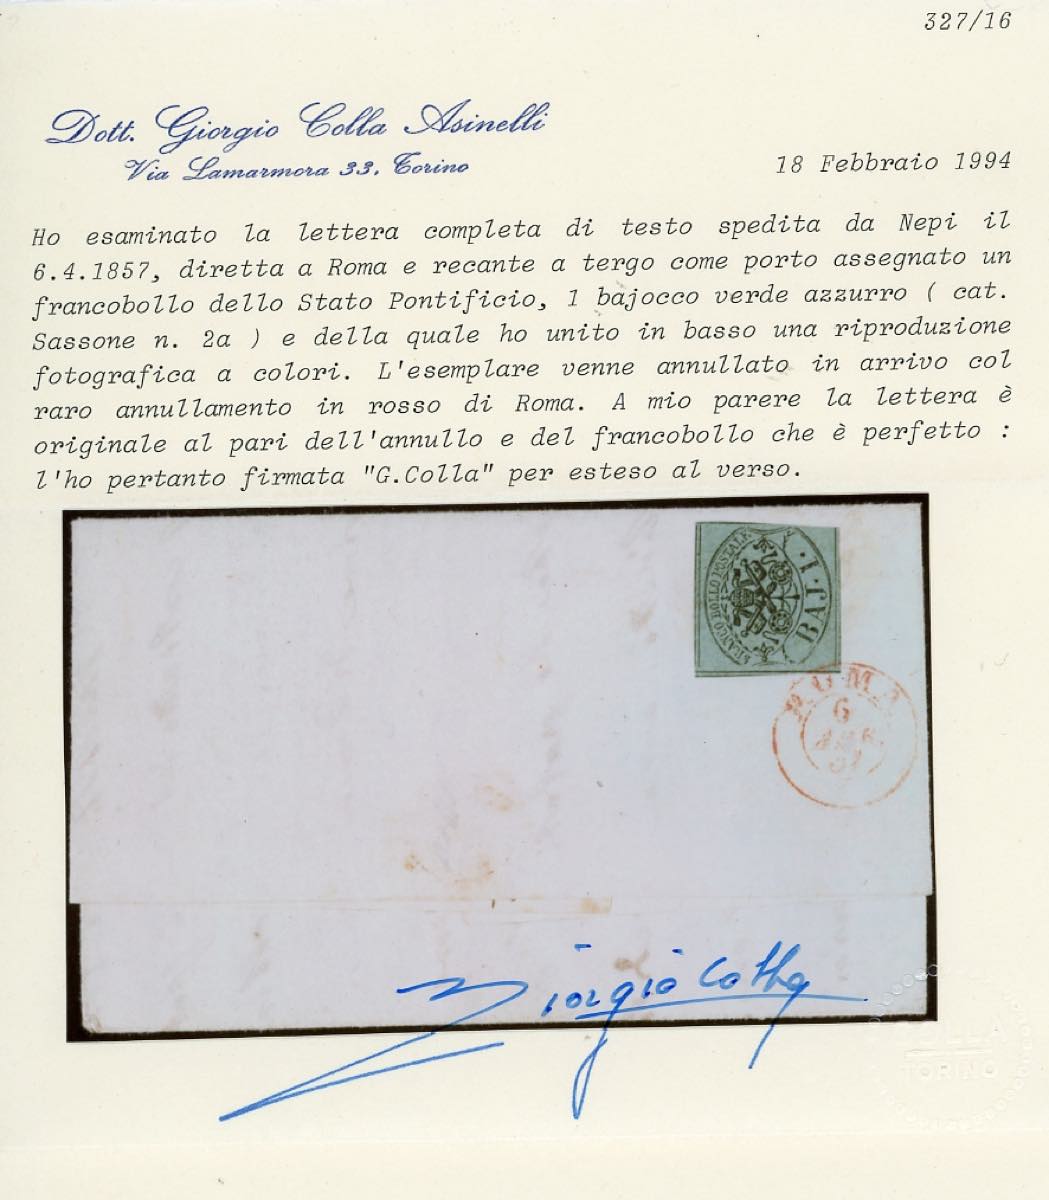 327/16
Dott. Giorgio Colla Asinelli
Via Lamarmora 33. Torino
18 Febbraio 1994
Ho esaminato la lettera completa di testo spedita da Nepi il
6.4.1857, diretta a Roma e recante a tergo come porto assegnato un
francobollo dello Stato Pontificio, 1 bajocco verde azzurro ( cat.
Sassone n. 2a ) e della quale ho unito in basso una riproduzione
fotografica a colori. L'esemplare venne annullato in arrivo col
raro annullamento in rosso di Roma. A mio parere la lettera è
originale al pari dell'annullo e del francobollo che è perfetto :
l'ho pertanto firmata "G.Colla" per esteso al verso.
FRANCO BOLLO POSTALE
·1·BAJ
ROMA
6
Giorgio Colla
COLLA
TORINO